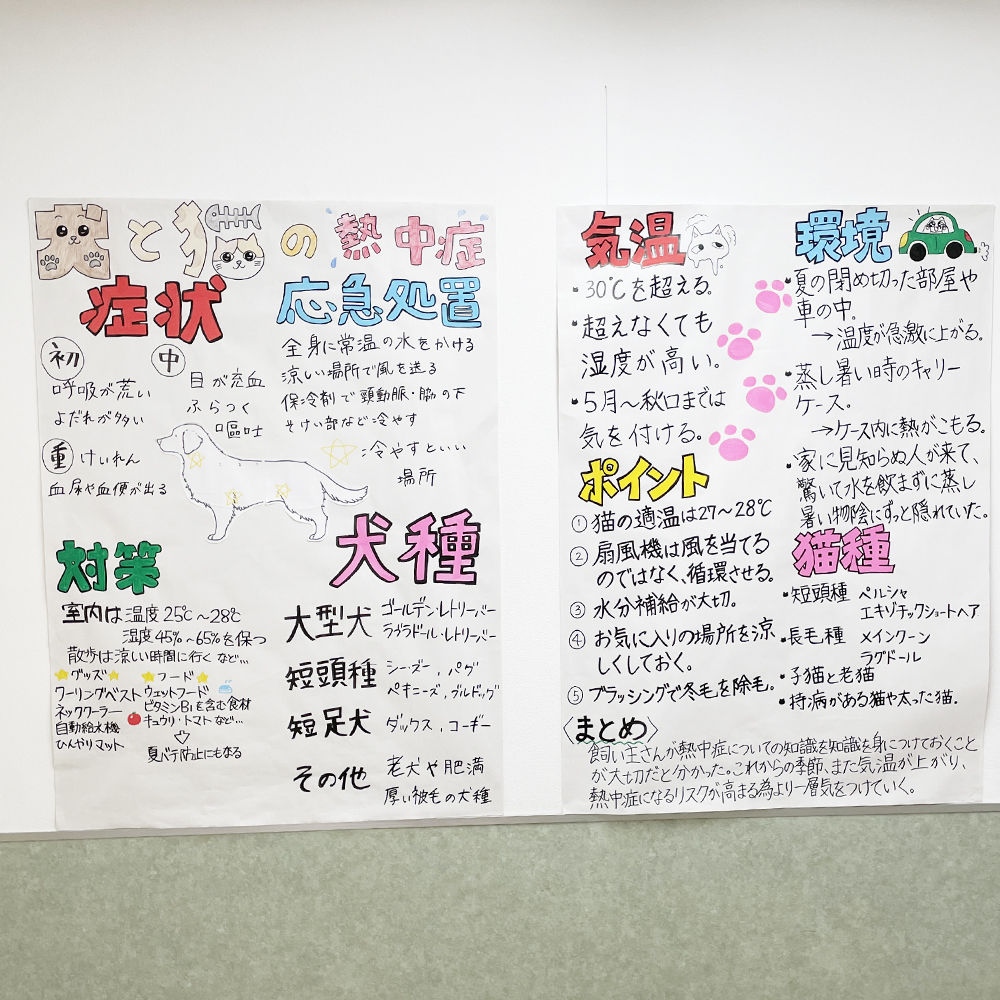 犬と猫の熱中症
症状
初
呼吸が荒い
よだれが多い
中
目が充血
ふらつく
嘔吐
重 けいれん
血尿や血便が出る
応急処置
全身に常温の水をかける
涼しい場所で風を送る
保冷剤で頸動脈・脇の下
そけい部など冷やす
☆:冷やすといい
場所
対策
室内は温度25℃〜28℃
湿度45%〜65%を保つ
散歩は涼しい時間に行くなど…
☆グッズ☆
クーリングベスト
ネッククーラー
自動給水機
ひんやりマット
☆フード☆
ウェットフード
ビタミンB1を含む食材
キュウリ・トマトなど…
⇩
夏バテ防止にもなる
犬種
大型犬 ゴールデン・レトリーバー
ラブラドール・レトリーバー
短頭種 シーズー,パグ
ペキニーズ,ブルドッグ
短足犬 ダックス,コーギー
その他 老犬や肥満
厚い被毛の犬種
気温
・30℃を超える。
・超えなくても
湿度が高い。
・5月〜秋口までは
気を付ける。
ポイント
①猫の適温は27〜28℃
②扇風機は風を当てる
のではなく、循環させる。
③水分補給が大切。
④お気に入りの場所を涼
しくしておく。
⑤ブラッシングで冬毛を除毛。
環境
・夏の閉め切った部屋や
車の中。
→温度が急激に上がる。
・蒸し暑い時のキャリー
ケース。
→ケース内に熱がこもる。
・家に見知らぬ人が来て、
驚いて水を飲まずに蒸し
暑い物陰にずっと隠れていた。
猫種
・短頭種 ペルシャ
エキゾチックショートヘア
・長毛種 メインクーン
ラグドール
・子猫と老猫
・持病がある猫や太った猫。
〈まとめ〉
飼い主さんが熱中症についての知識を知識を身につけておくこと
が大切だと分かった。これからの季節、また気温が上がり、
熱中症になるリスクが高まる為より一層気をつけていく。